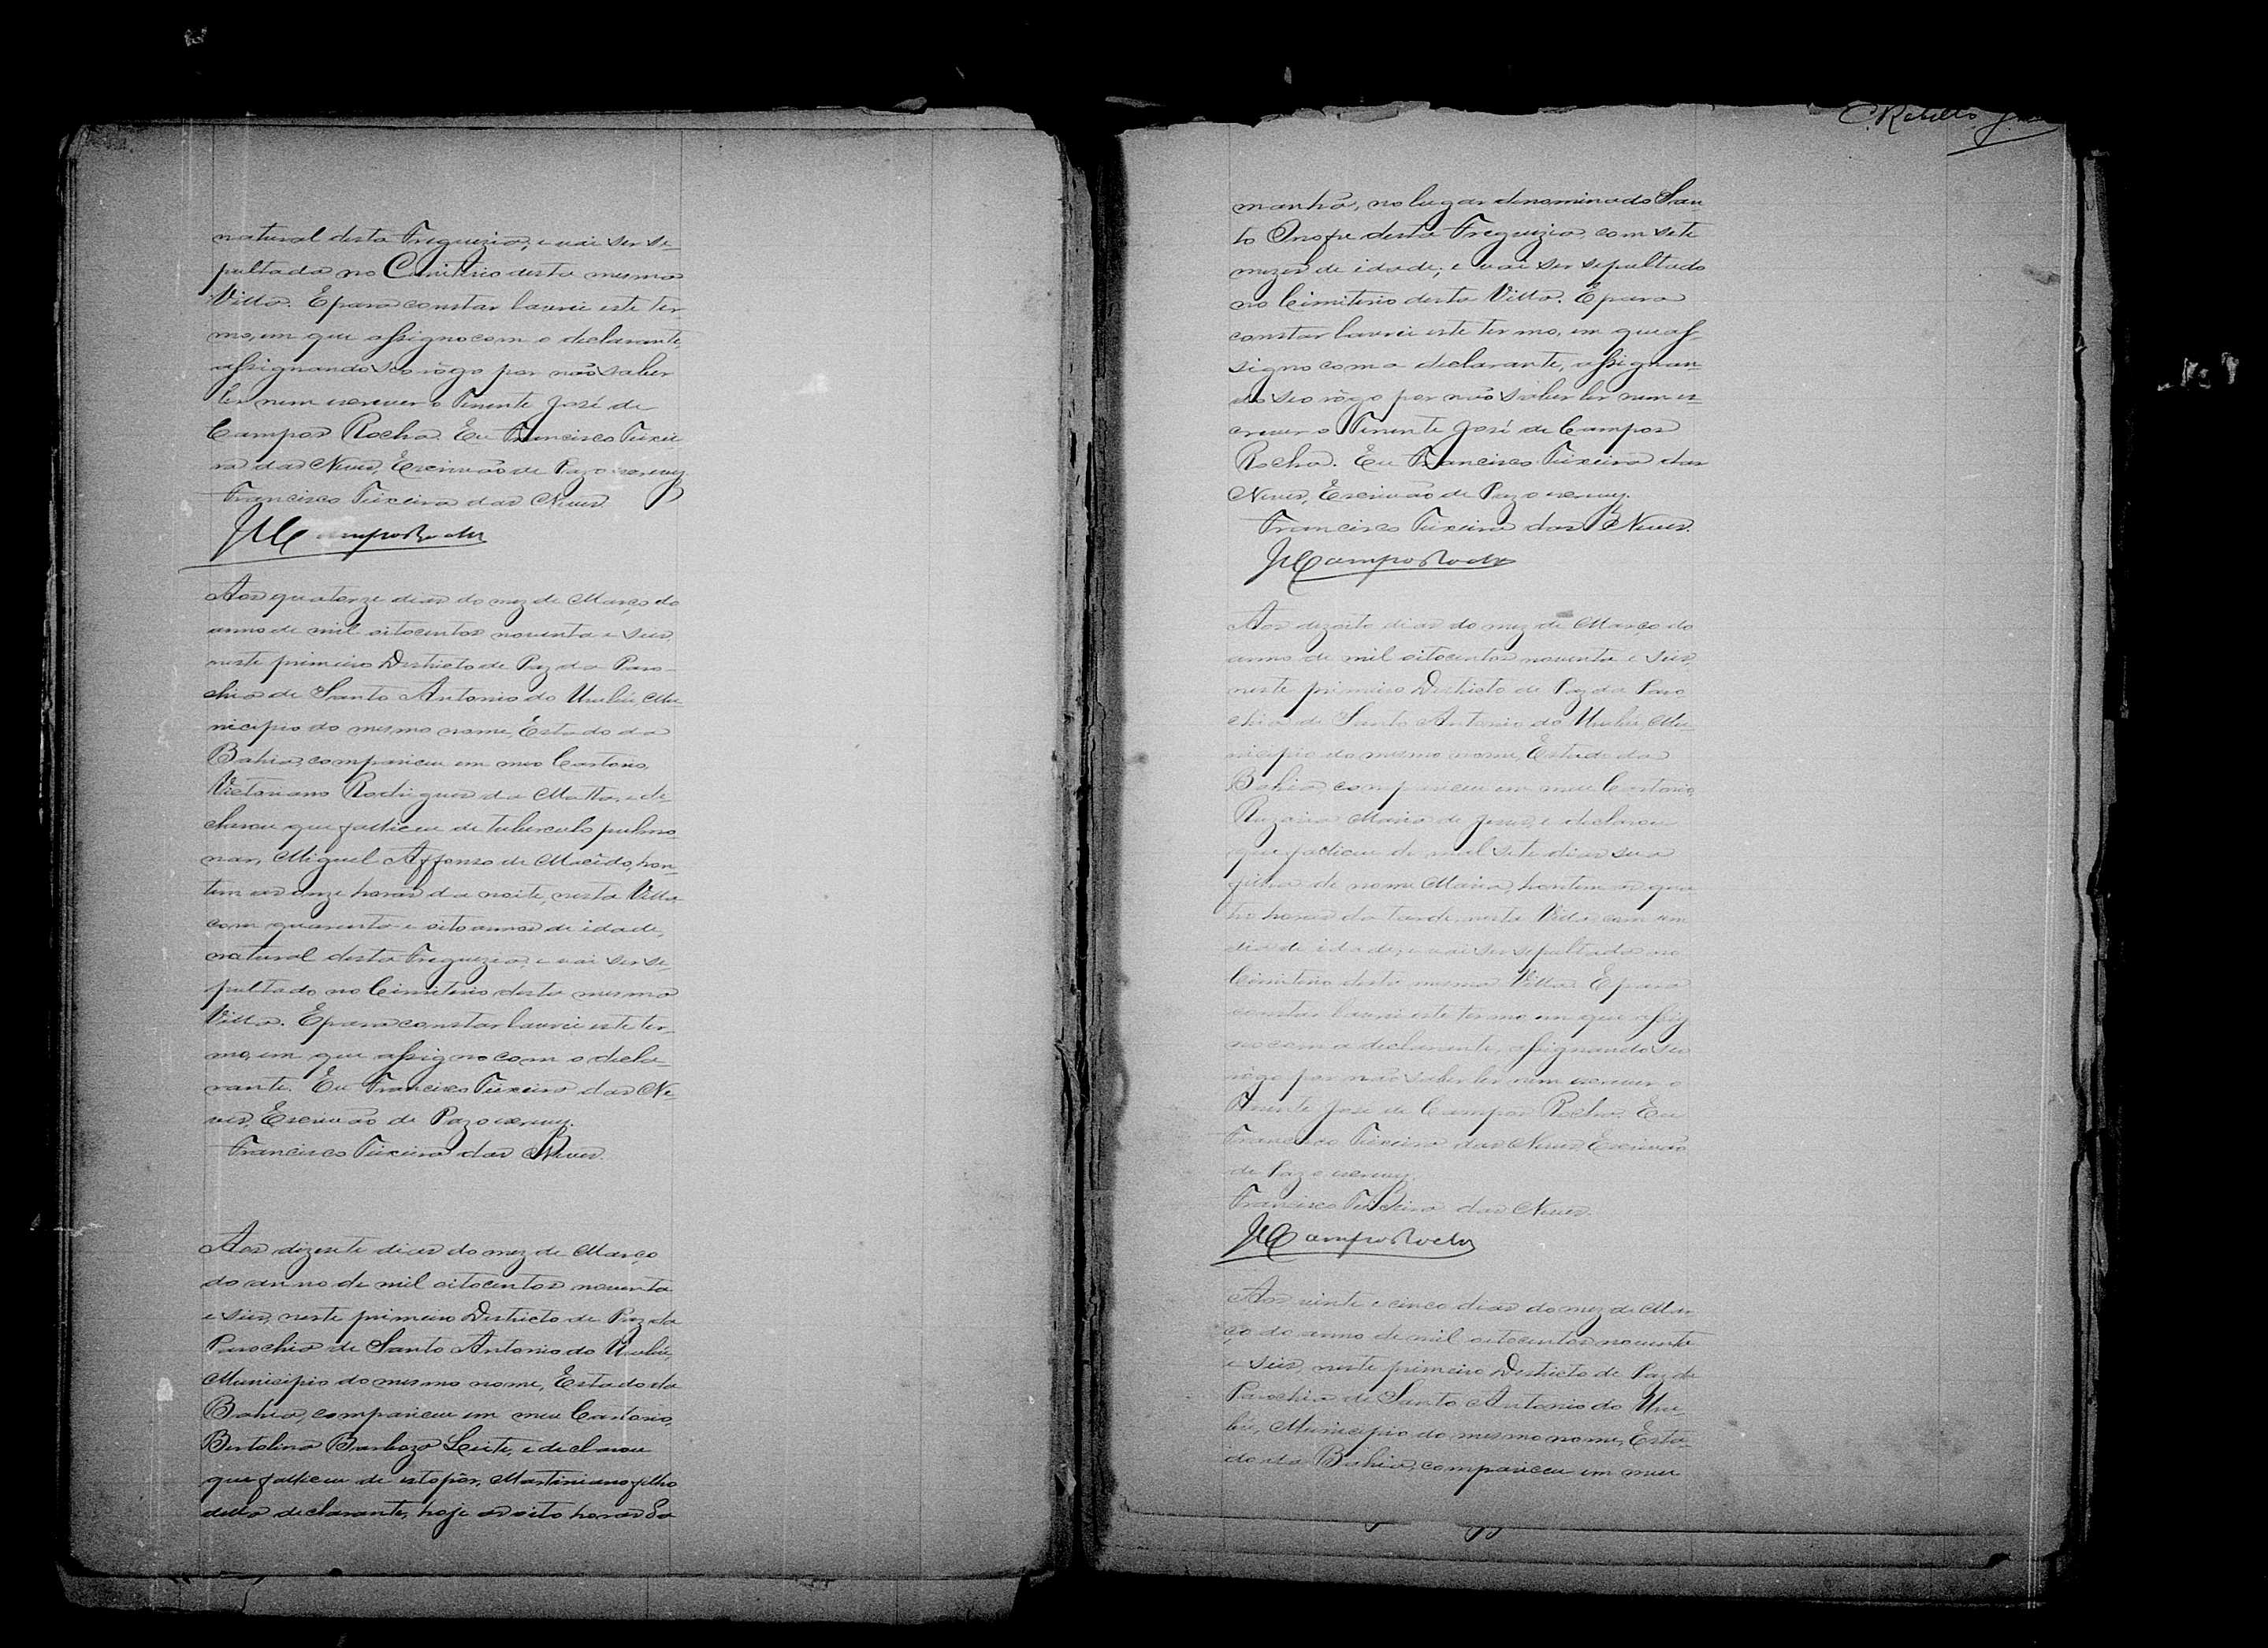 natural desta Freguezia, e vai ser se-
pultada no Cimiterio desta mesma
Villa. E para constar lavrei este ter-
mo, em que assigno com o declarante,
assignando seo rôgo por não saber
ler nem escrever o Tenente José de
Campos Rocha. Eu Francisco Teixei-
ra das Neves, Escrivão de Paz o escrevy.
Francisco Teixeira das Neves.
JCCamposRocha
Aos quatorze dias do mez de Março do
anno de mil oitocentos noventa e seis
neste primeiro Destricto de Paz da Paro-
chia de Santo Antonio do Urubú, Mu-
nicipio do mesmo nome, Estado da
Bahia, compareceu em meo Cartorio,
Victoriano Rodrigues da Motta, e de-
clarou que falleceu de tuberculo pulmo-
nar, Miguel Affonso de Macêdo, hon-
tem as onze horas da noite, nesta Villa
com quarenta e oito annos de idade,
natural desta Freguezia, e vai ser se-
pultado no Cimiterio desta mesma
Villa. E para constar lavrei este ter-
mo, em que assigno com o decla-
rante. Eu Francisco Teixeira das Ne-
ves, Escrivão de Paz o escrevy.
Francisco Teixeira das Neves.
Aos dizesete dias do mez de Março
do anno de mil oitocentos noventa
e seis, neste primeiro Destricto de Paz da
Parochia de Santo Antonio do Urubú,
Municipio do mesmo nome, Estado da
Bahia, compareceu em meu Cartorio,
Bertolina Barboza Leite, e declarou
que falleceu de estopôr, Martiniano filho
della declarante, hoje as oito horas da
C. Rabello
manhã, no lugar denominado San
to Onofre desta Freguezia, com sete
mezes de idade; e vai ser sepultado
no Cimiterio desta Villa. E para
constar lavrei este termo, em que as-
signo com a declarante, assignan-
do seo rôgo por não saber ler nem es-
crever o Tenente José de Campos
Rocha. Eu Francisco Teixeira das
Neves, Escrivão de Paz o escrevy.
Francisco Teixeira das Neves.
JCCamposRocha
Aos dizoito dias do mez de Março do
anno de mil oitocentos noventa e seis,
neste primeiro Destricto de Paz da Paro
chia de Santo Antonio do Urubú, Mu-
nicipio do mesmo nome, Estado da
Bahia, compareceu em meu Cartorio,
Maria de Jesus, e declarou
que falleceu de mal sete dias sua
filha de nome Maria, hontem as qua
tro horas da tarde, nesta Villa com um
dia de idade; e vai ser sepultada no
Cimiterio desta mesma Villa. E para
constar lavrei este termo em que assig
no com a declarante, assignando seo
rôgo por não saber ler nem escrever o
Tenente José de Campos Rocha. Eu
Francisco Teixeira das Neves, Escrivão
de Paz o escrevy.
Francisco Teixeira das Neves.
JCCamposRocha
Aos vinte e cinco dias do mez de Mar
ço do anno de mil oitocentos noventa
e seis, neste primeiro Destricto de Paz da
Parochia de Santo Antonio do Uru-
bú, Municipio do mesmo nome, Esta-
do da Bahia, compareceu em meu